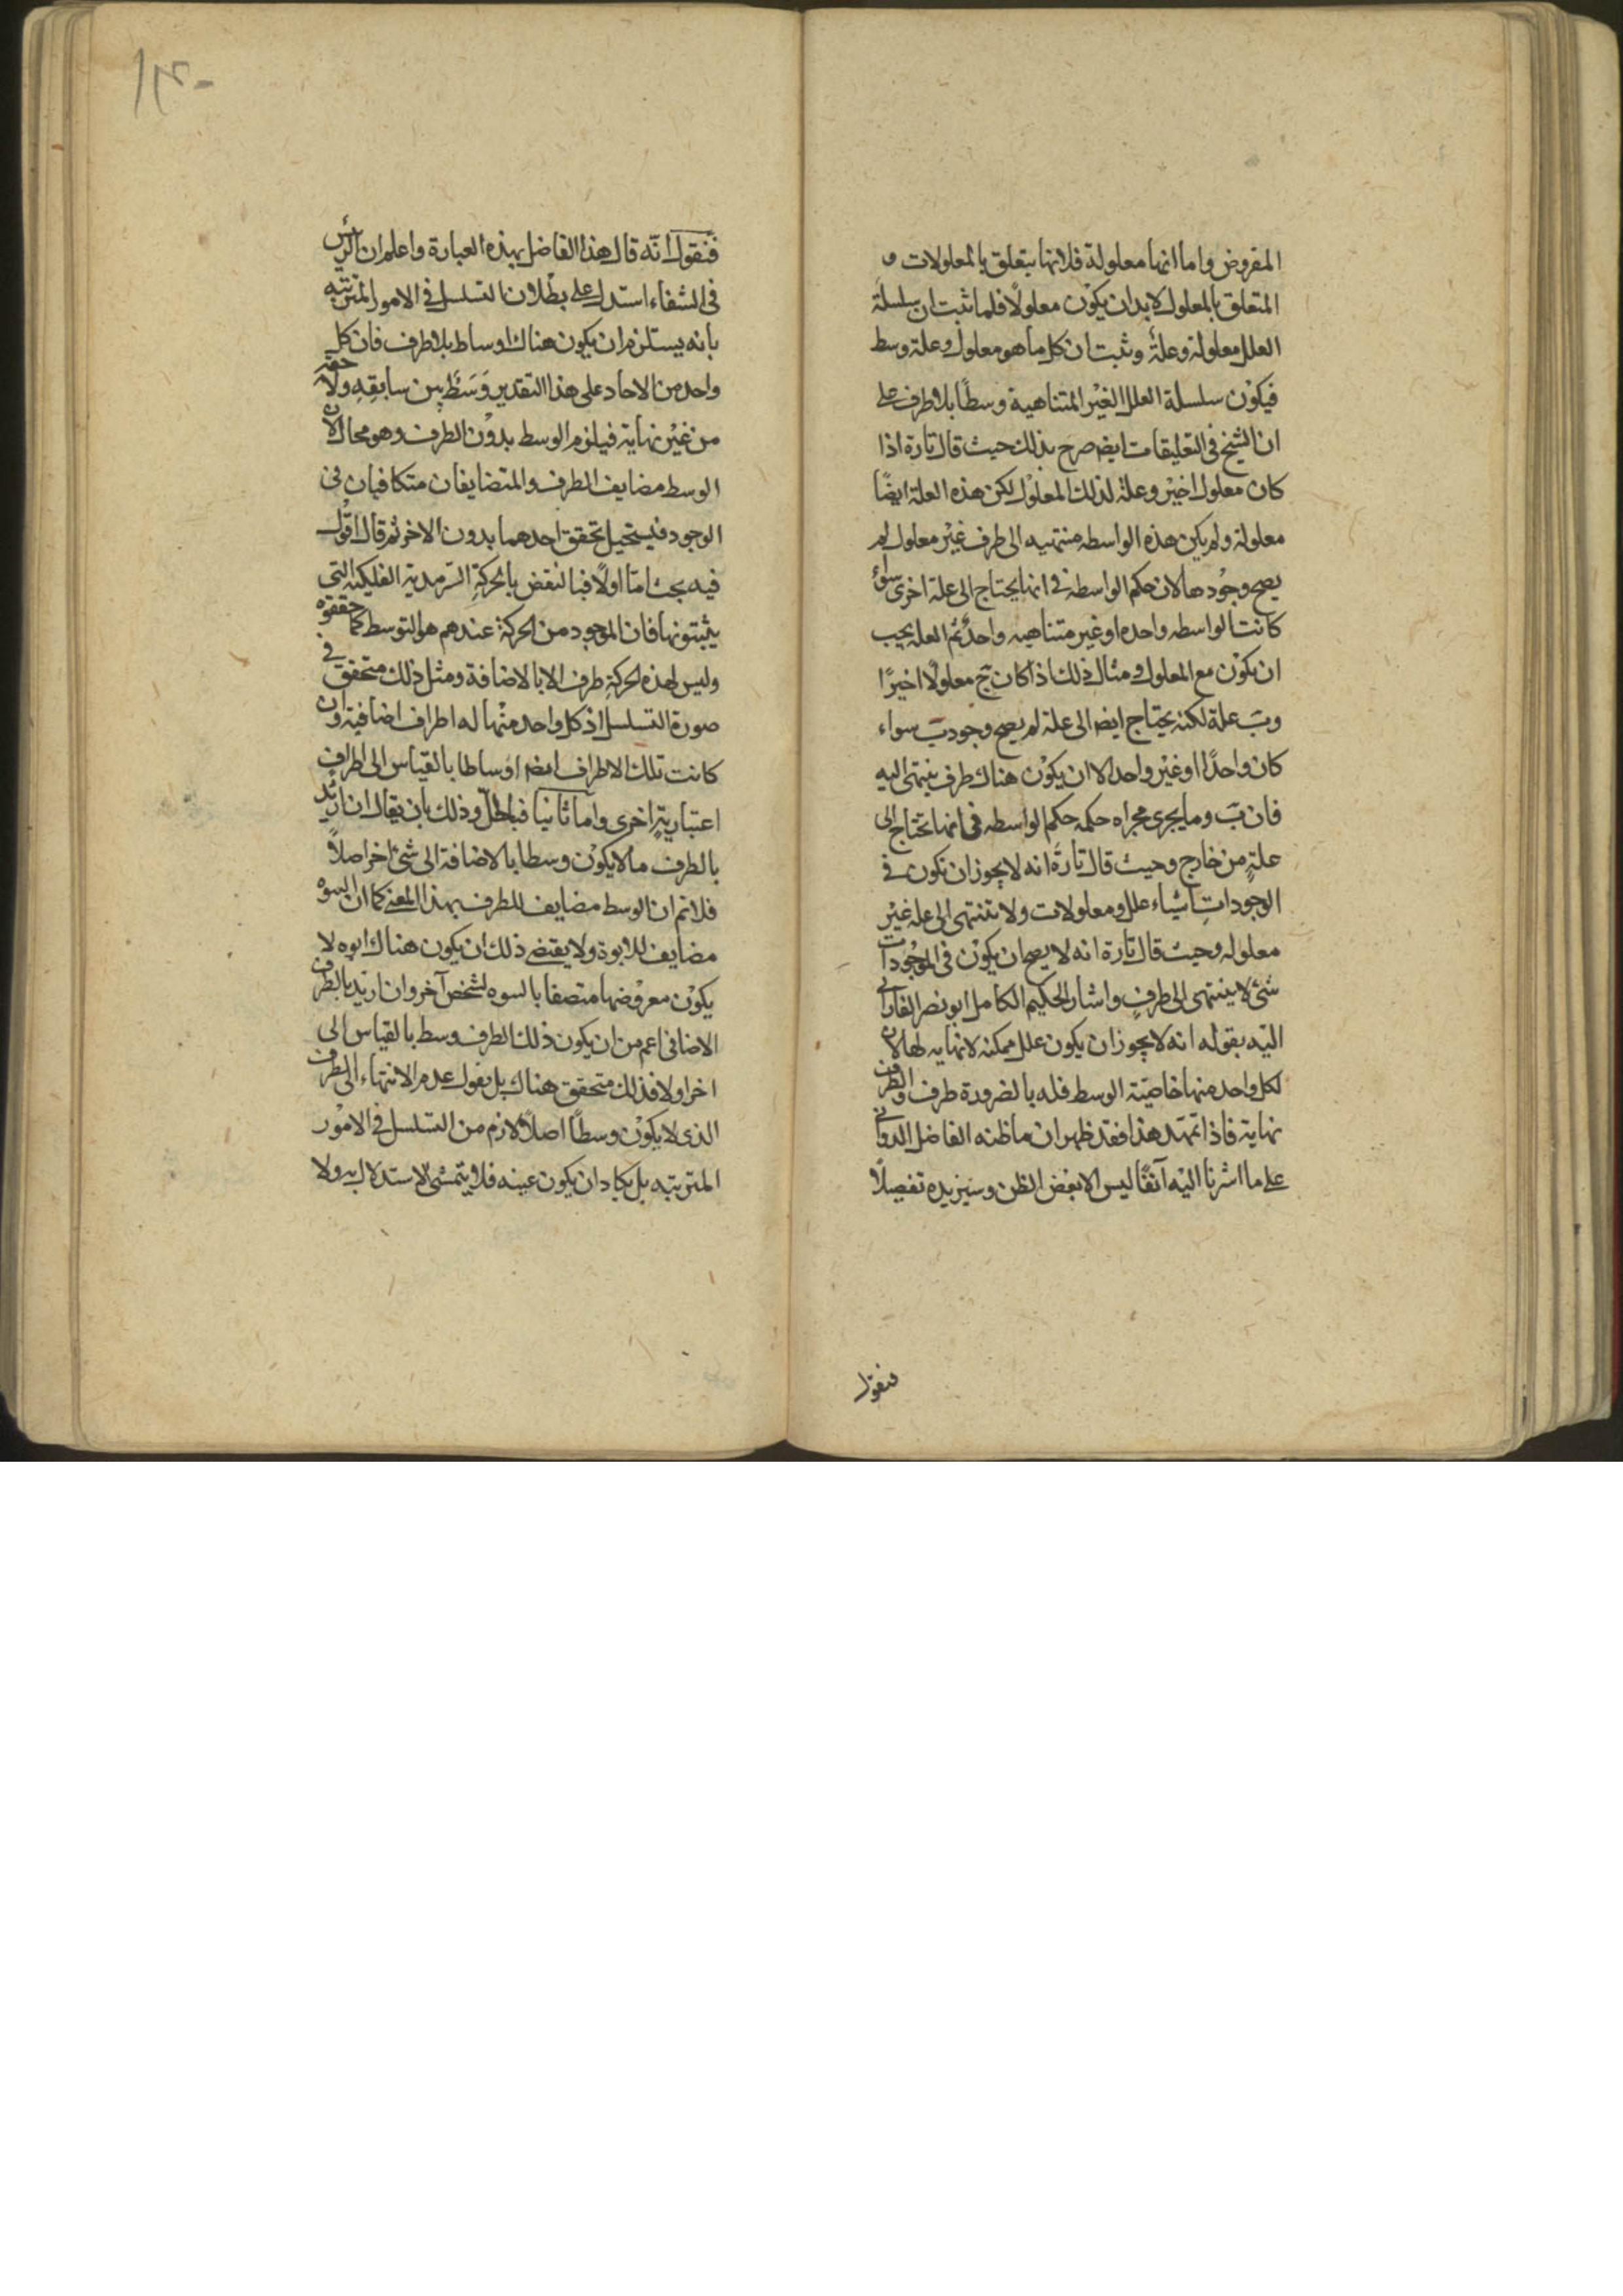 المفروض واما انها معلولة فلانها يتعلق بالمعلولات و
المتعلق بالمعلول لابد ان يكون معلولًا فلما ثبت ان سلسلة
العلل معلولة وعلة وثبت ان كل ما هو معلول وعلة وسط
فيكون سلسلة العلل الغير المتناهية وسطًا بلا طرف على
ان الشيخ فى التعليقات ايضا صرح بذلك حيث قال تارة اذا
كان معلول اخير وعلة لذلك المعلول لكن هذه العلة ايضًا
معلولة ولم يكن هذه الواسطه منتهيه الى طرف غير معلول لم
يصح وجودها لان حكم الواسطه فى انها يحتاج الى علة اخرى سواء
كانت الواسطه واحده او غير متناهيه واحد ثم العلة يجب
ان يكون مع المعلول و مثال ذلك اذا كان ج معلولًا اخيرًا
وب علة لكنه يحتاج ايضا الى علة لم يصح وجود ب سواء
كان واحدًا او غير واحد الا ان يكون هناك طرف ينتهى اليه
فان ب وما يجرى مجراه حكمه حكم الواسطه فى انها تحتاج الى
علةٍ من خارج وحيث قال تارةً انه لا يجوز ان تكون فى
الوجودات اشياء علل ومعلولات ولا تنتهى الى علة غير
معلوله وحيث قال تارة انه لا يصح ان يكون فى الموجودات
شئ لا ينتهى الى طرفٍ واشار الحكيم الكامل ابو نصر الفارابى
اليه بقوله انه لا يجوز ان يكون علل ممكنه لانهايه لها لان
لكل واحد منها خاصيّة الوسط فله بالضرورة طرف والطرف
نهاية فاذا تمهّد هذا فقد ظهر ان ما ظنه الفاضل الدوانى
على ما اشرنا اليه آنفًا ليس الا بعض الظن وسنزيده تفصيلًا
فنقول
١٣٠
فنقول انّه قال هذا الفاضل بهذه العبارة واعلم ان الرئيس
فى الشفاء استدل على بطلان التسلسل فى الامور المترتبه
بانه يستلزم ان يكون هناك اوساط بلا طرف فان كل
واحد من الاحاد على هذا التقدير وَسَط بين سابقِهِ ولاحقه
من غير نهاية فيلزم الوسط بدون الطرف وهو محال لان
الوسط مضايف الطرف والمتضايفان متكافيان فى
الوجود فيستحيل تحقق احدهما بدون الاخر ثم قال اقول
فيه بحث امّا اولًا فبالنقض بالحركةِ السرمدية الفلكيه التى
يثبتونها فان الموجود من الحركة عندهم هو التوسط كما حققوه
وليس لهذه الحركةِ طرف الا بالاضافة ومثل ذلك متحقق فى
صورة التسلسل اذ كل واحد منها له اطراف اضافية وان
كانت تلك الاطراف ايضا اوساطا بالقياس الى اطراف
اعتباريةٍ اخرى واما ثانيا فبالحلّ وذلك بان يقال ان اريد
بالطرف ما لا يكون وسطا بالاضافة الى شئ اخر اصلًا
فلانم ان الوسط مضايف للطرف بهذا المعنى كما ان البنوه
مضايف للابوة ولا يقتضى ذلك ان يكون هناك ابوه لا
يكون معروضها متصفا بالبنوه لشخص آخر وان اريد بالطرف
الاضافى اعم من ان يكون ذلك الطرف وسط بالقياس الى
اخر اولا فذلك متحقق هناك بل نقول عدم الانتهاء الى الطرف
الذى لا يكون وسطًا اصلًا لازم من التسلسل فى الامور
المترتبه بل يكاد ان يكون عينه فلا يتمشى الاستدلال به ولا